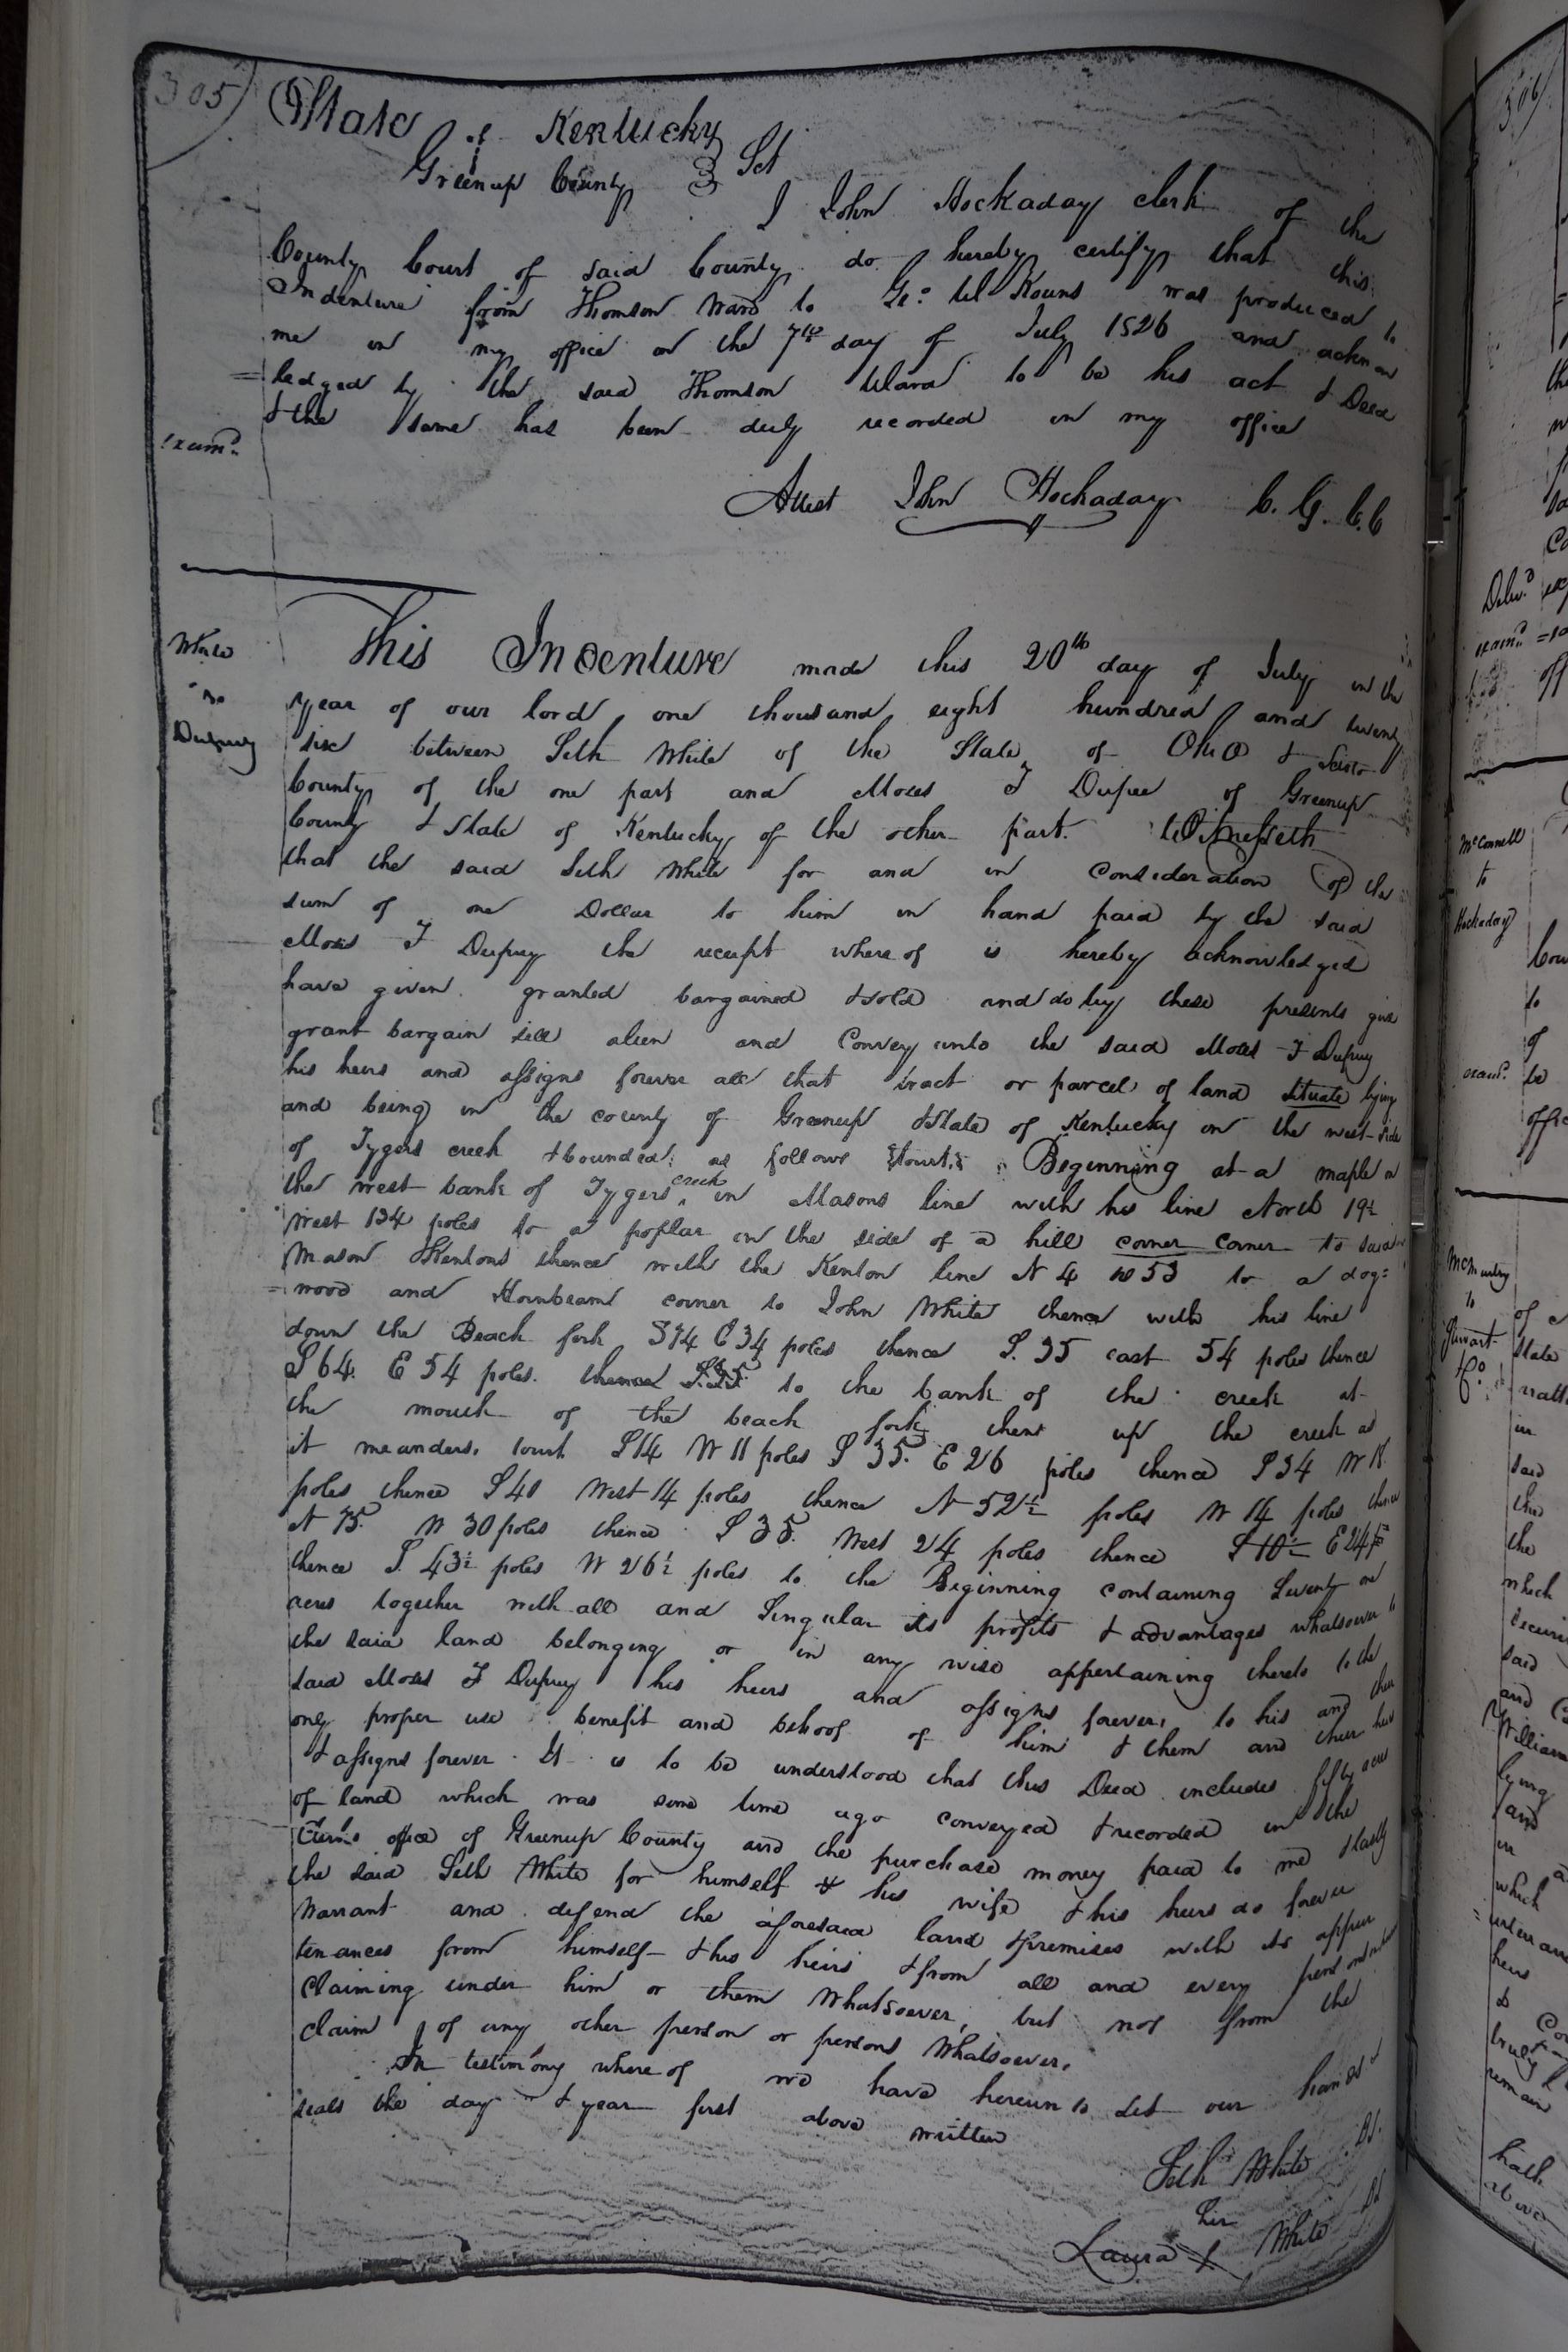 305
State of Kentucky
Greenup County } Sct
I John Hockaday clerk of the
County Court of said County do hereby certify that this
Indenture from Thomson Ward to Geo: W Kouns was produced to
me in my office on the 7th day of July 1826 and acknow
=ledged by the said Thomson Ward to be his act & Deed
& the same has been duly recorded in my office
Examd.
Attest John Hockaday C. G. C. C
White
to
Dupuy
This Indenture made this 20th day of July in the
year of our lord one thousand eight hundred and twenty
six between Seth White of the State of Ohio & Scioto
County of the one part and Moses T Dupee of Greenup
County & State of Kentucky of the other part. Witnesseth
that the said Seth White for and in consideration of the
sum of one Dollar to him in hand paid by the said
Moses T Dupuy the receipt where of is hereby acknowledged
have given granted bargained & sold and do by these presents give
grant bargain sell alien and Convey unto the said Moses T Dupuy
his heirs and assigns forever all that tract or parcel of land situate lying
and being in the county of Greenup & State of Kentucky on the west side
of Tygers creek & bounded as follows Beginning at a maple on
the west bank of Tygers creek in Masons line with his line North 19½
West 134 poles to a poplar on the side of a hill corner corner to said
Mason & Kentons thence with the Kenton line N 4 W 53 to a dog=
=wood and Hornbeam corner to John White thence with his line
down the Beach fork S74 E34 poles thence S. 35 east 54 poles thence
S 64. E 54 poles. thence to the bank of the creek at
the mouth of the beach fork thence up the creek as
it meanders. S14 W 11 poles S 35. E 26 poles thence S 34 W 18
poles thence S40 West 14 poles thence N 52½ poles W 14 poles thence
N 75. W 30 poles thence S 35. West 24 poles thence S 10½ E 24 p
thence S. 43½ poles W 26½ poles to the Beginning containing Seventy one
acres together with all and Singular its profits & advantages whatsoever to
the said land belonging or in any wise appertaining thereto to the
said Moses T Dupuy his heirs and assigns forever, to his and their
only proper use benefit and behoof of him & them and their heirs
& assigns forever. It is to be understood that this Deed includes fifty acres
of land which was some time ago conveyed & recorded in the
Clerks office of Greenup County and the purchase money paid to me & lastly
the said Seth White for himself & his wife & his heirs do forever
Warrant and defend the aforesaid land & premises with its appur
tenances from himself & his heirs & from all and every person
Claiming under him or them Whatsoever, but not from the
claim of any other person or persons Whatsoever.
In testimony where of we have hereunto set our hands &
seals the day & year first above written
Seth White
her
Laura X White
306
McConnell
to
Hockaday
McMurtry
to
Stuart